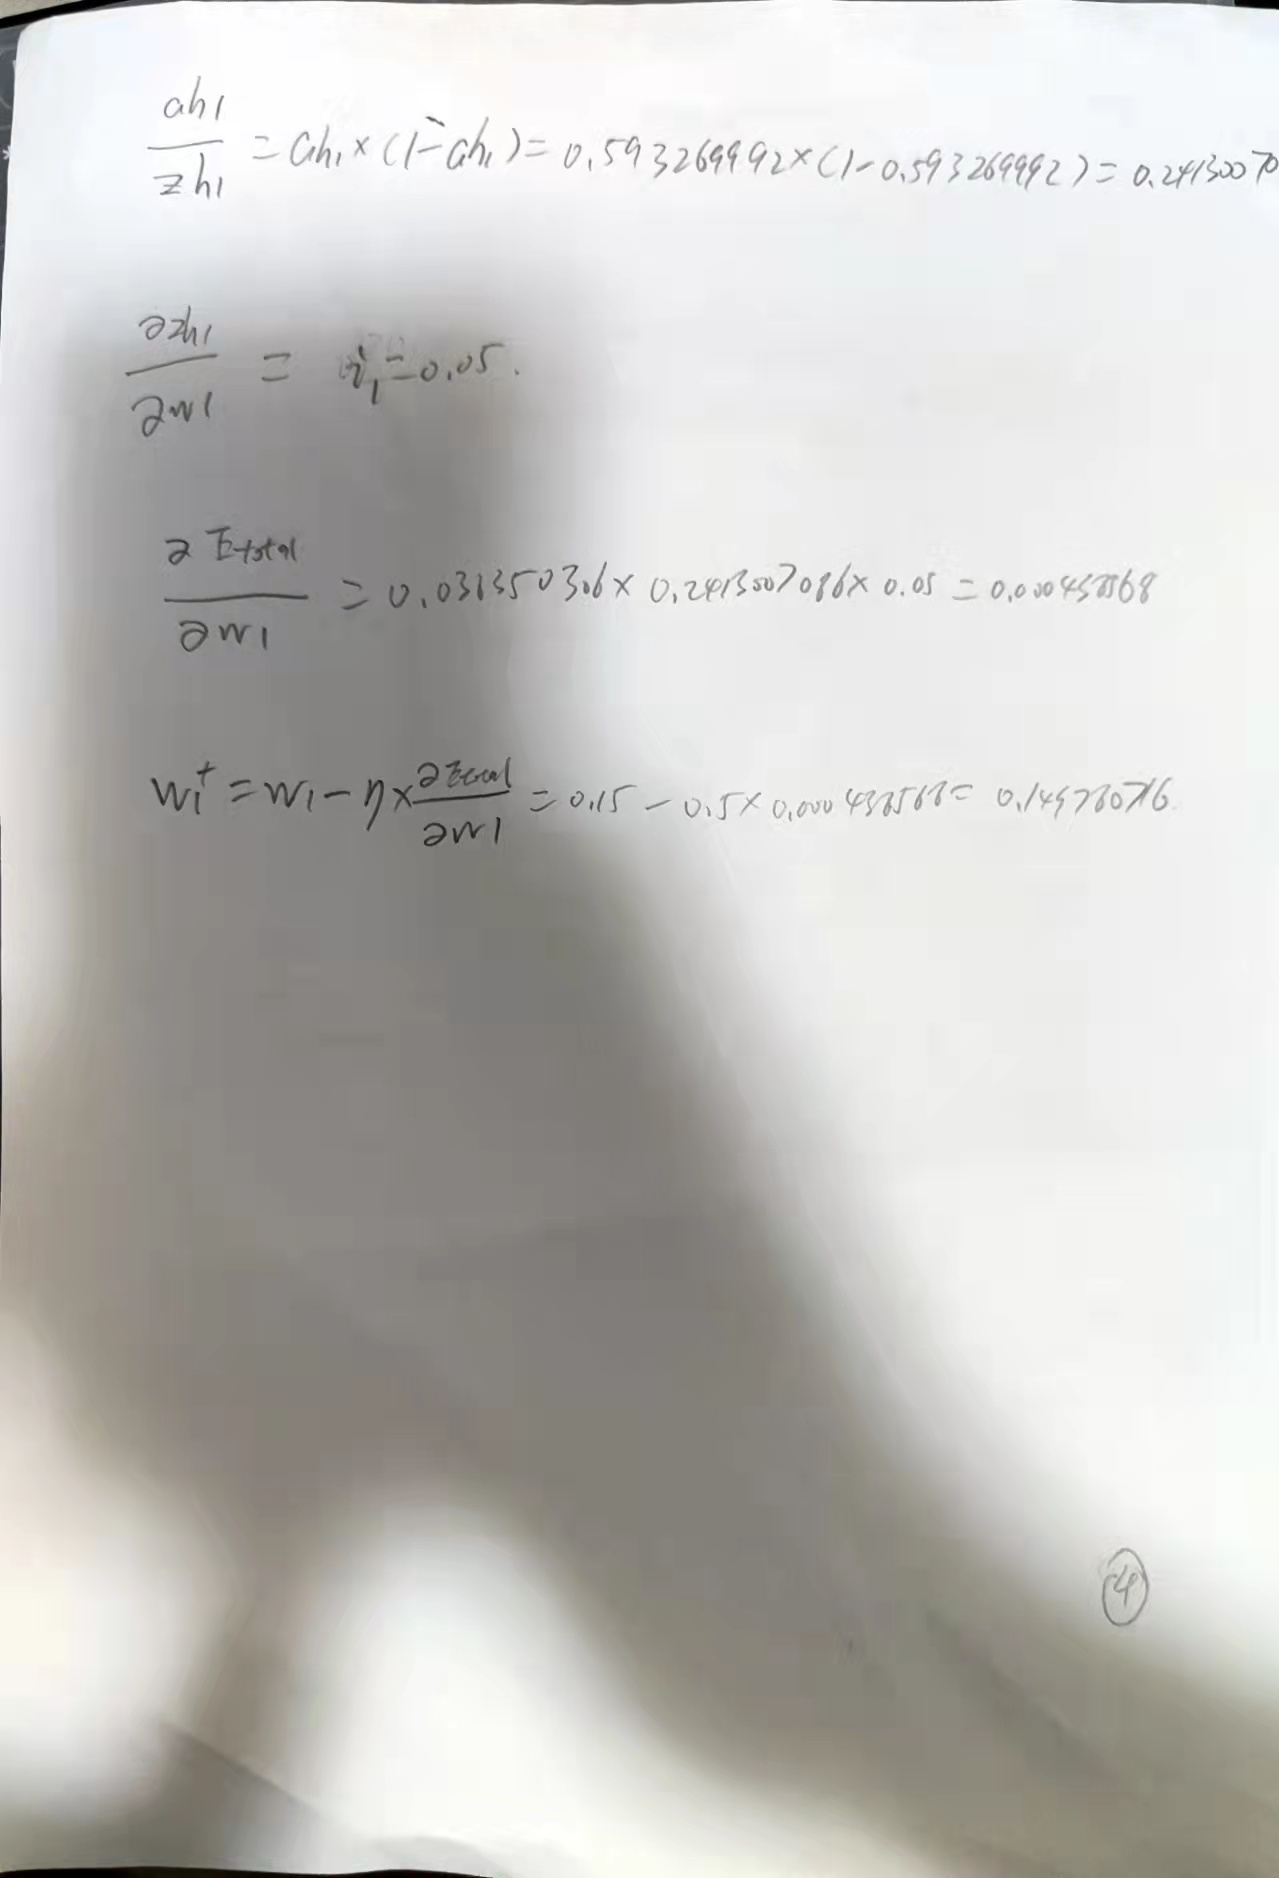 ah1/zh1 = ah1 × (1 - ah1) = 0.593269992 × (1 - 0.593269992) = 0.24130070
∂zh1/∂w1 = i1 = 0.05.
∂Etotal/∂w1 = 0.036350306 × 0.2413007086 × 0.05 = 0.000438568
w1⁺ = w1 - η × ∂Etotal/∂w1 = 0.15 - 0.5 × 0.000438568 = 0.14978076
④